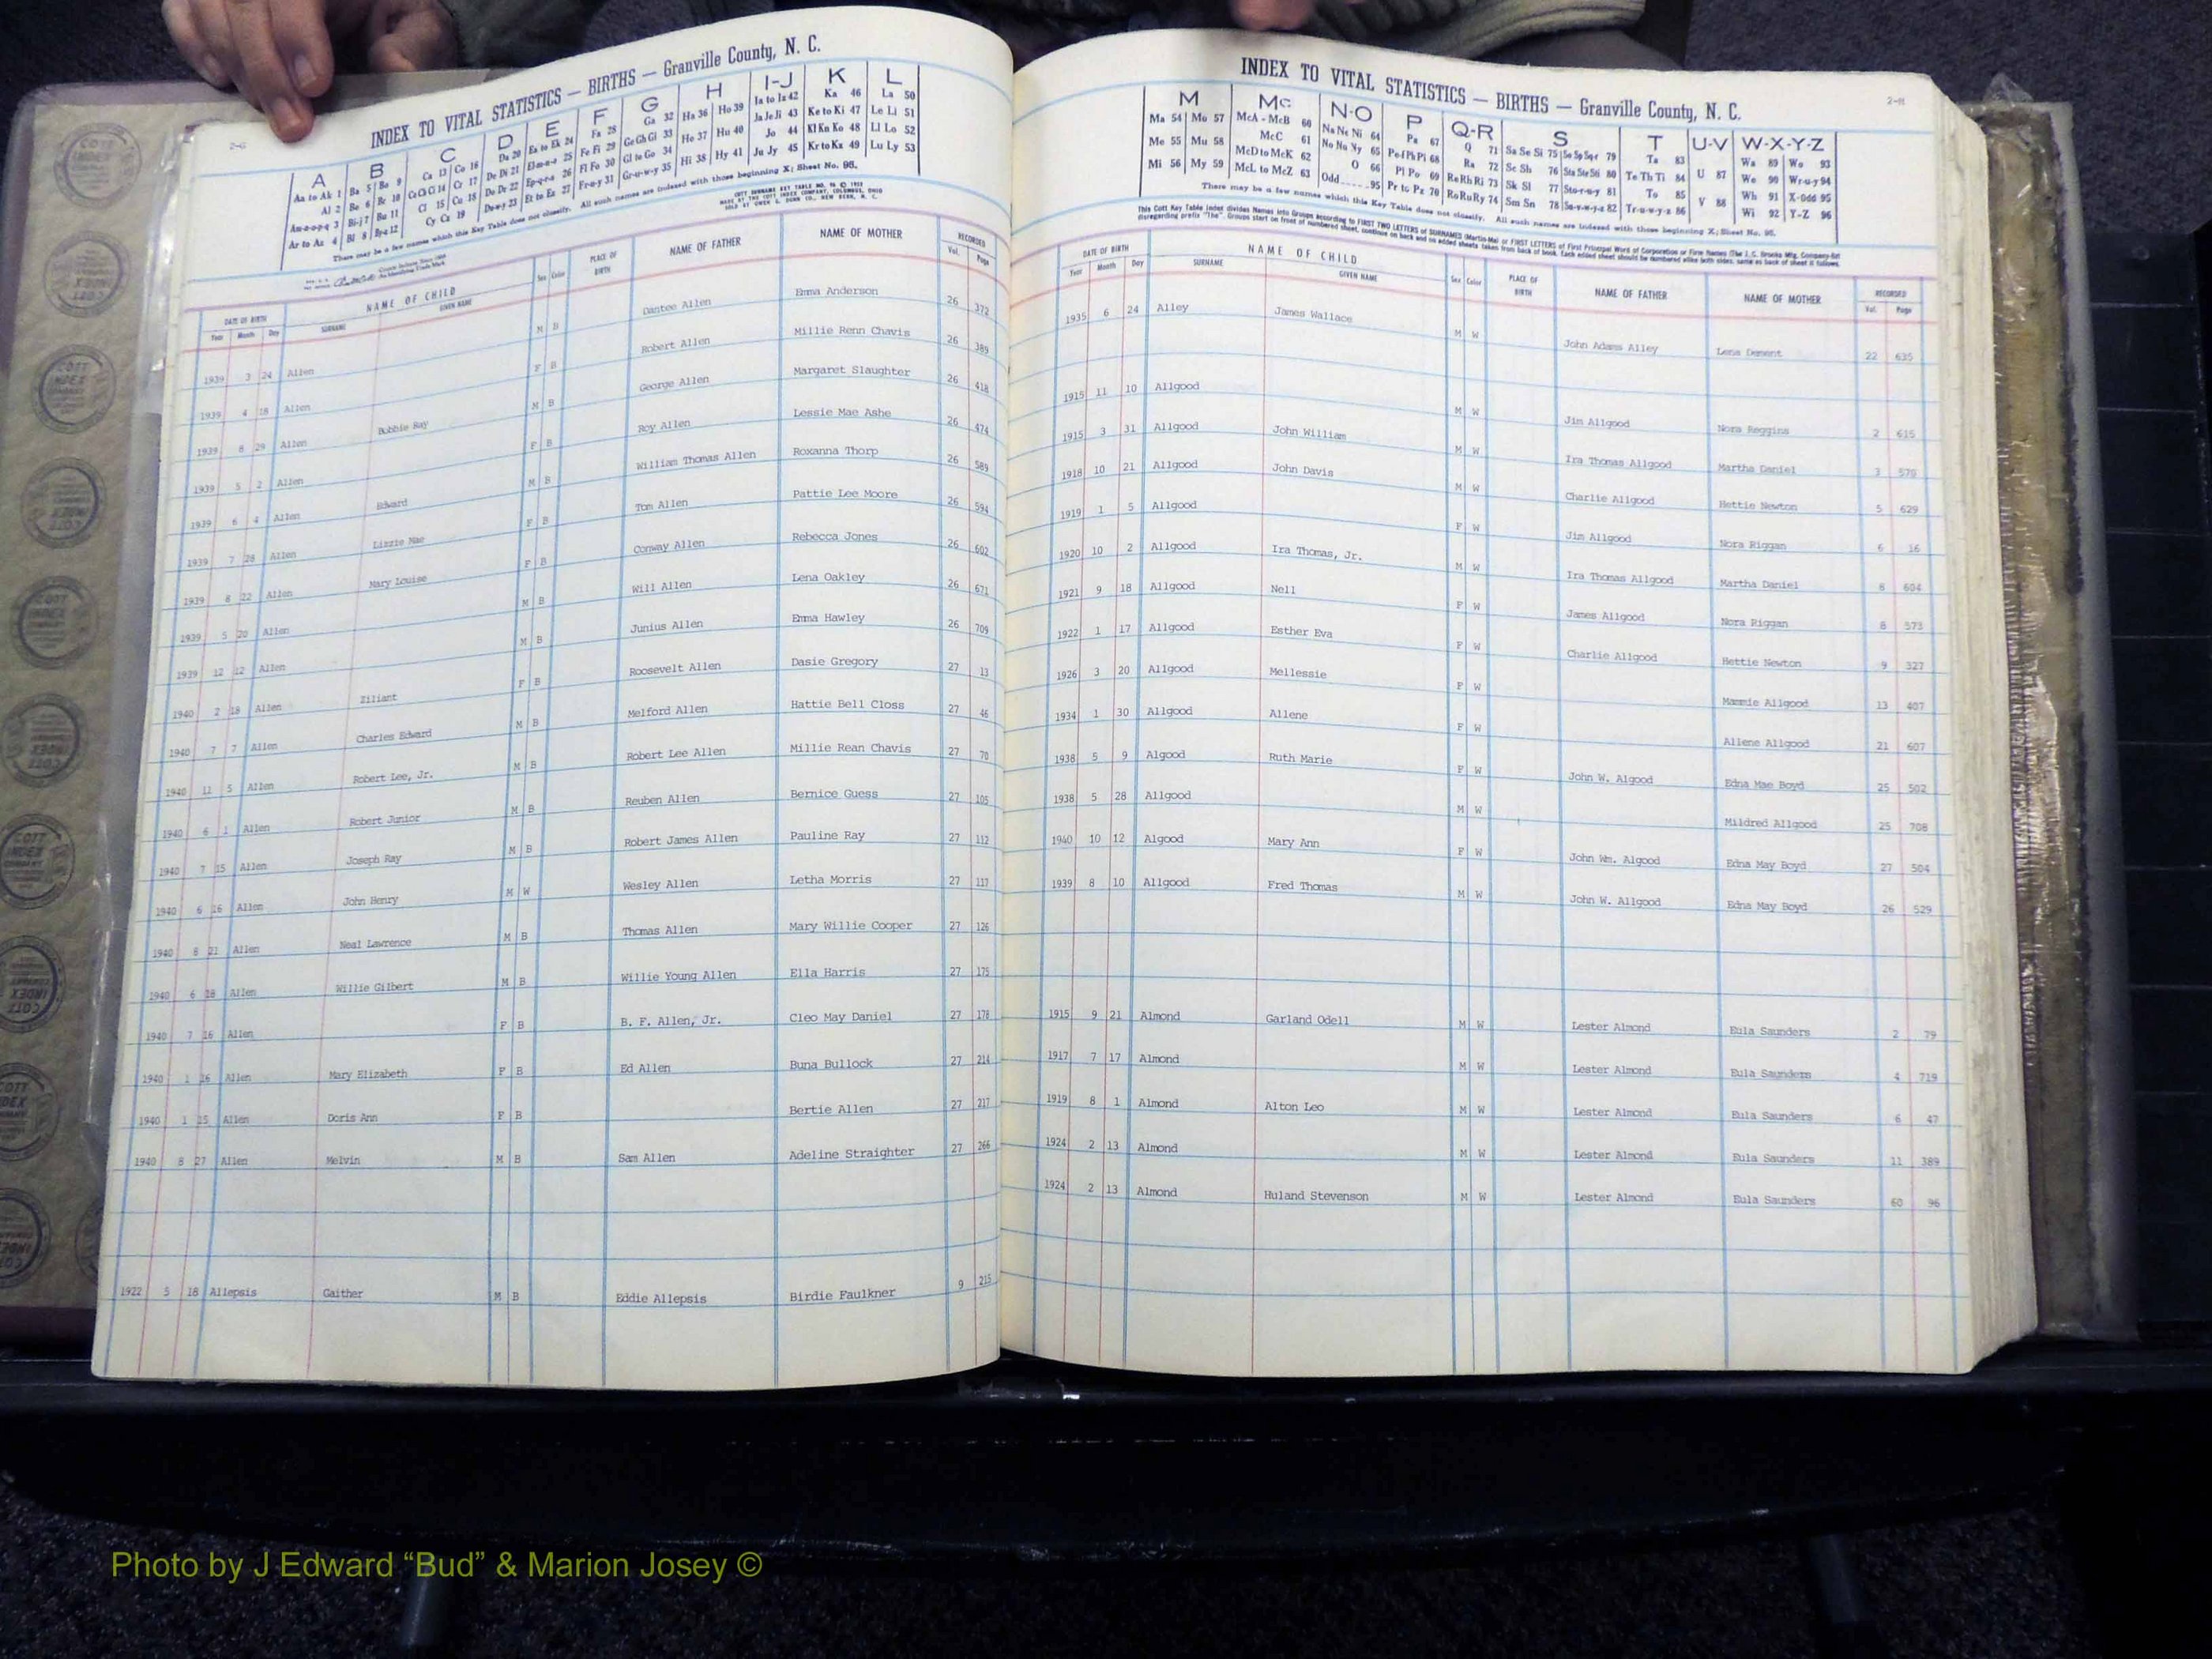 2-G
INDEX TO VITAL STATISTICS — BIRTHS — Granville County, N. C.
A B C D E F G H I-J K L
Aa to Ak 1 Ba 5 Bo 9 Ca 13 Co 16 Da 20 Ea to Ek 24 Fa 28 Ga 32 Ha 36 Ho 39 Ia to Iz 42 Ka 46 La 50
Al 2 Be 6 Br 10 Ce Ch Ci 14 Cr 17 De Di 21 El-m-n-o 25 Fe Fi 29 Ge Gh Gi 33 He 37 Hu 40 Ja Je Ji 43 Ke to Ki 47 Le Li 51
Am-n-o-p-q 3 Bi-j 7 Bu 11 Cl 15 Cu 18 Do Dr 22 Ep-q-r-s 26 Fl Fo 30 Gl to Go 34 Hi 38 Hy 41 Jo 44 Kl Kn Ko 48 Ll Lo 52
Ar to Az 4 Bl 8 By-z 12 Cy Cz 19 Du-w-y 23 Et to Ez 27 Fr-u-y 31 Gr-u-w-y 35 Ju Jy 45 Kr to Kz 49 Lu Ly 53
There may be a few names which this Key Table does not classify. All such names are indexed with those beginning X; Sheet No. 96.
DATE OF BIRTH NAME OF CHILD Sex Color PLACE OF BIRTH NAME OF FATHER NAME OF MOTHER RECORDED
Year Month Day SURNAME GIVEN NAME Vol. Page
1939 3 24 Allen M B Dantee Allen Emma Anderson 26 372
1939 4 18 Allen F B Robert Allen Millie Renn Chavis 26 389
1939 8 29 Allen Bobbie Ray M B George Allen Margaret Slaughter 26 418
1939 5 2 Allen F B Roy Allen Lessie Mae Ashe 26 474
1939 6 4 Allen Edward M B William Thomas Allen Roxanna Thorp 26 589
1939 7 28 Allen Lizzie Mae F B Tom Allen Pattie Lee Moore 26 594
1939 8 22 Allen Mary Louise F B Conway Allen Rebecca Jones 26 602
1939 5 20 Allen M B Will Allen Lena Oakley 26 671
1939 12 12 Allen M B Junius Allen Emma Hawley 26 709
1940 2 18 Allen Ziliant F B Roosevelt Allen Dasie Gregory 27 13
1940 7 7 Allen Charles Edward M B Melford Allen Hattie Bell Closs 27 46
1940 11 5 Allen Robert Lee, Jr. M B Robert Lee Allen Millie Rean Chavis 27 70
1940 6 1 Allen Robert Junior M B Reuben Allen Bernice Guess 27 105
1940 7 15 Allen Joseph Ray M B Robert James Allen Pauline Ray 27 112
1940 6 16 Allen John Henry M W Wesley Allen Letha Morris 27 117
1940 8 21 Allen Neal Lawrence M B Thomas Allen Mary Willie Cooper 27 126
1940 6 28 Allen Willie Gilbert M B Willie Young Allen Ella Harris 27 175
1940 7 16 Allen F B B. F. Allen, Jr. Cleo May Daniel 27 178
1940 1 16 Allen Mary Elizabeth F B Ed Allen Buna Bullock 27 214
1940 1 15 Allen Doris Ann F B Bertie Allen 27 217
1940 8 27 Allen Melvin M B Sam Allen Adeline Straighter 27 266
1922 5 18 Allepsis Gaither M B Eddie Allepsis Birdie Faulkner 9 215
2-H
INDEX TO VITAL STATISTICS — BIRTHS — Granville County, N. C.
M Mc N-O P Q-R S T U-V W-X-Y-Z
Ma 54 Mo 57 McA - McB 60 Na Ne Ni 64 Pa 67 Q 71 Sa Se Si 75 So Sp Sq-r 79 Ta 83 U 87 Wa 89 Wo 93
Me 55 Mu 58 McC 61 No Nu Ny 65 Pe-f Ph Pi 68 Ra 72 Sc Sh 76 Sta Ste Sti 80 Te Th Ti 84 V 88 We 90 Wr-u-y 94
Mi 56 My 59 McD to McK 62 O 66 Pl Po 69 Re Rh Ri 73 Sk Sl 77 Sto-r-u-y 81 To 85 Wh 91 X-Odd 95
McL to McZ 63 Odd.....95 Pr to Pz 70 Ro Ru Ry 74 Sm Sn 78 Su-v-w-y-z 82 Tr-u-w-y-z 86 Wi 92 Y-Z 96
There may be a few names which this Key Table does not classify. All such names are indexed with those beginning X; Sheet No. 96.
This Cott Key Table Index divides Names into Groups according to FIRST TWO LETTERS of SURNAMES (Martin-Ma) or FIRST LETTERS of First Principal Word of Corporation or Firm Names (The J. C. Brooks Mfg. Company-Br)
disregarding prefix "The". Groups start on front of numbered sheet, continue on back and on added sheets taken from back of book. Each added sheet should be numbered alike both sides, same as back of sheet it follows.
DATE OF BIRTH NAME OF CHILD Sex Color PLACE OF BIRTH NAME OF FATHER NAME OF MOTHER RECORDED
Year Month Day SURNAME GIVEN NAME Vol. Page
1935 6 24 Alley James Wallace M W John Adams Alley Lena Dement 22 635
1915 11 10 Allgood M W Jim Allgood Nora Reggins 2 615
1915 3 31 Allgood John William M W Ira Thomas Allgood Martha Daniel 3 570
1918 10 21 Allgood John Davis M W Charlie Allgood Hettie Newton 5 629
1919 1 5 Allgood F W Jim Allgood Nora Riggan 6 16
1920 10 2 Allgood Ira Thomas, Jr. M W Ira Thomas Allgood Martha Daniel 8 604
1921 9 18 Allgood Nell F W James Allgood Nora Riggan 8 573
1922 1 17 Allgood Esther Eva F W Charlie Allgood Hettie Newton 9 327
1926 3 20 Allgood Mellessie F W Mammie Allgood 13 407
1934 1 30 Allgood Allene F W Allene Allgood 21 607
1938 5 9 Algood Ruth Marie F W John W. Algood Edna Mae Boyd 25 502
1938 5 28 Allgood M W Mildred Allgood 25 708
1940 10 12 Algood Mary Ann F W John Wm. Algood Edna May Boyd 27 504
1939 8 10 Allgood Fred Thomas M W John W. Allgood Edna May Boyd 26 529
1915 9 21 Almond Garland Odell M W Lester Almond Eula Saunders 2 79
1917 7 17 Almond M W Lester Almond Eula Saunders 4 719
1919 8 1 Almond Alton Leo M W Lester Almond Eula Saunders 6 47
1924 2 13 Almond M W Lester Almond Eula Saunders 11 389
1924 2 13 Almond Huland Stevenson M W Lester Almond Eula Saunders 60 96
Photo by J Edward “Bud” & Marion Josey ©